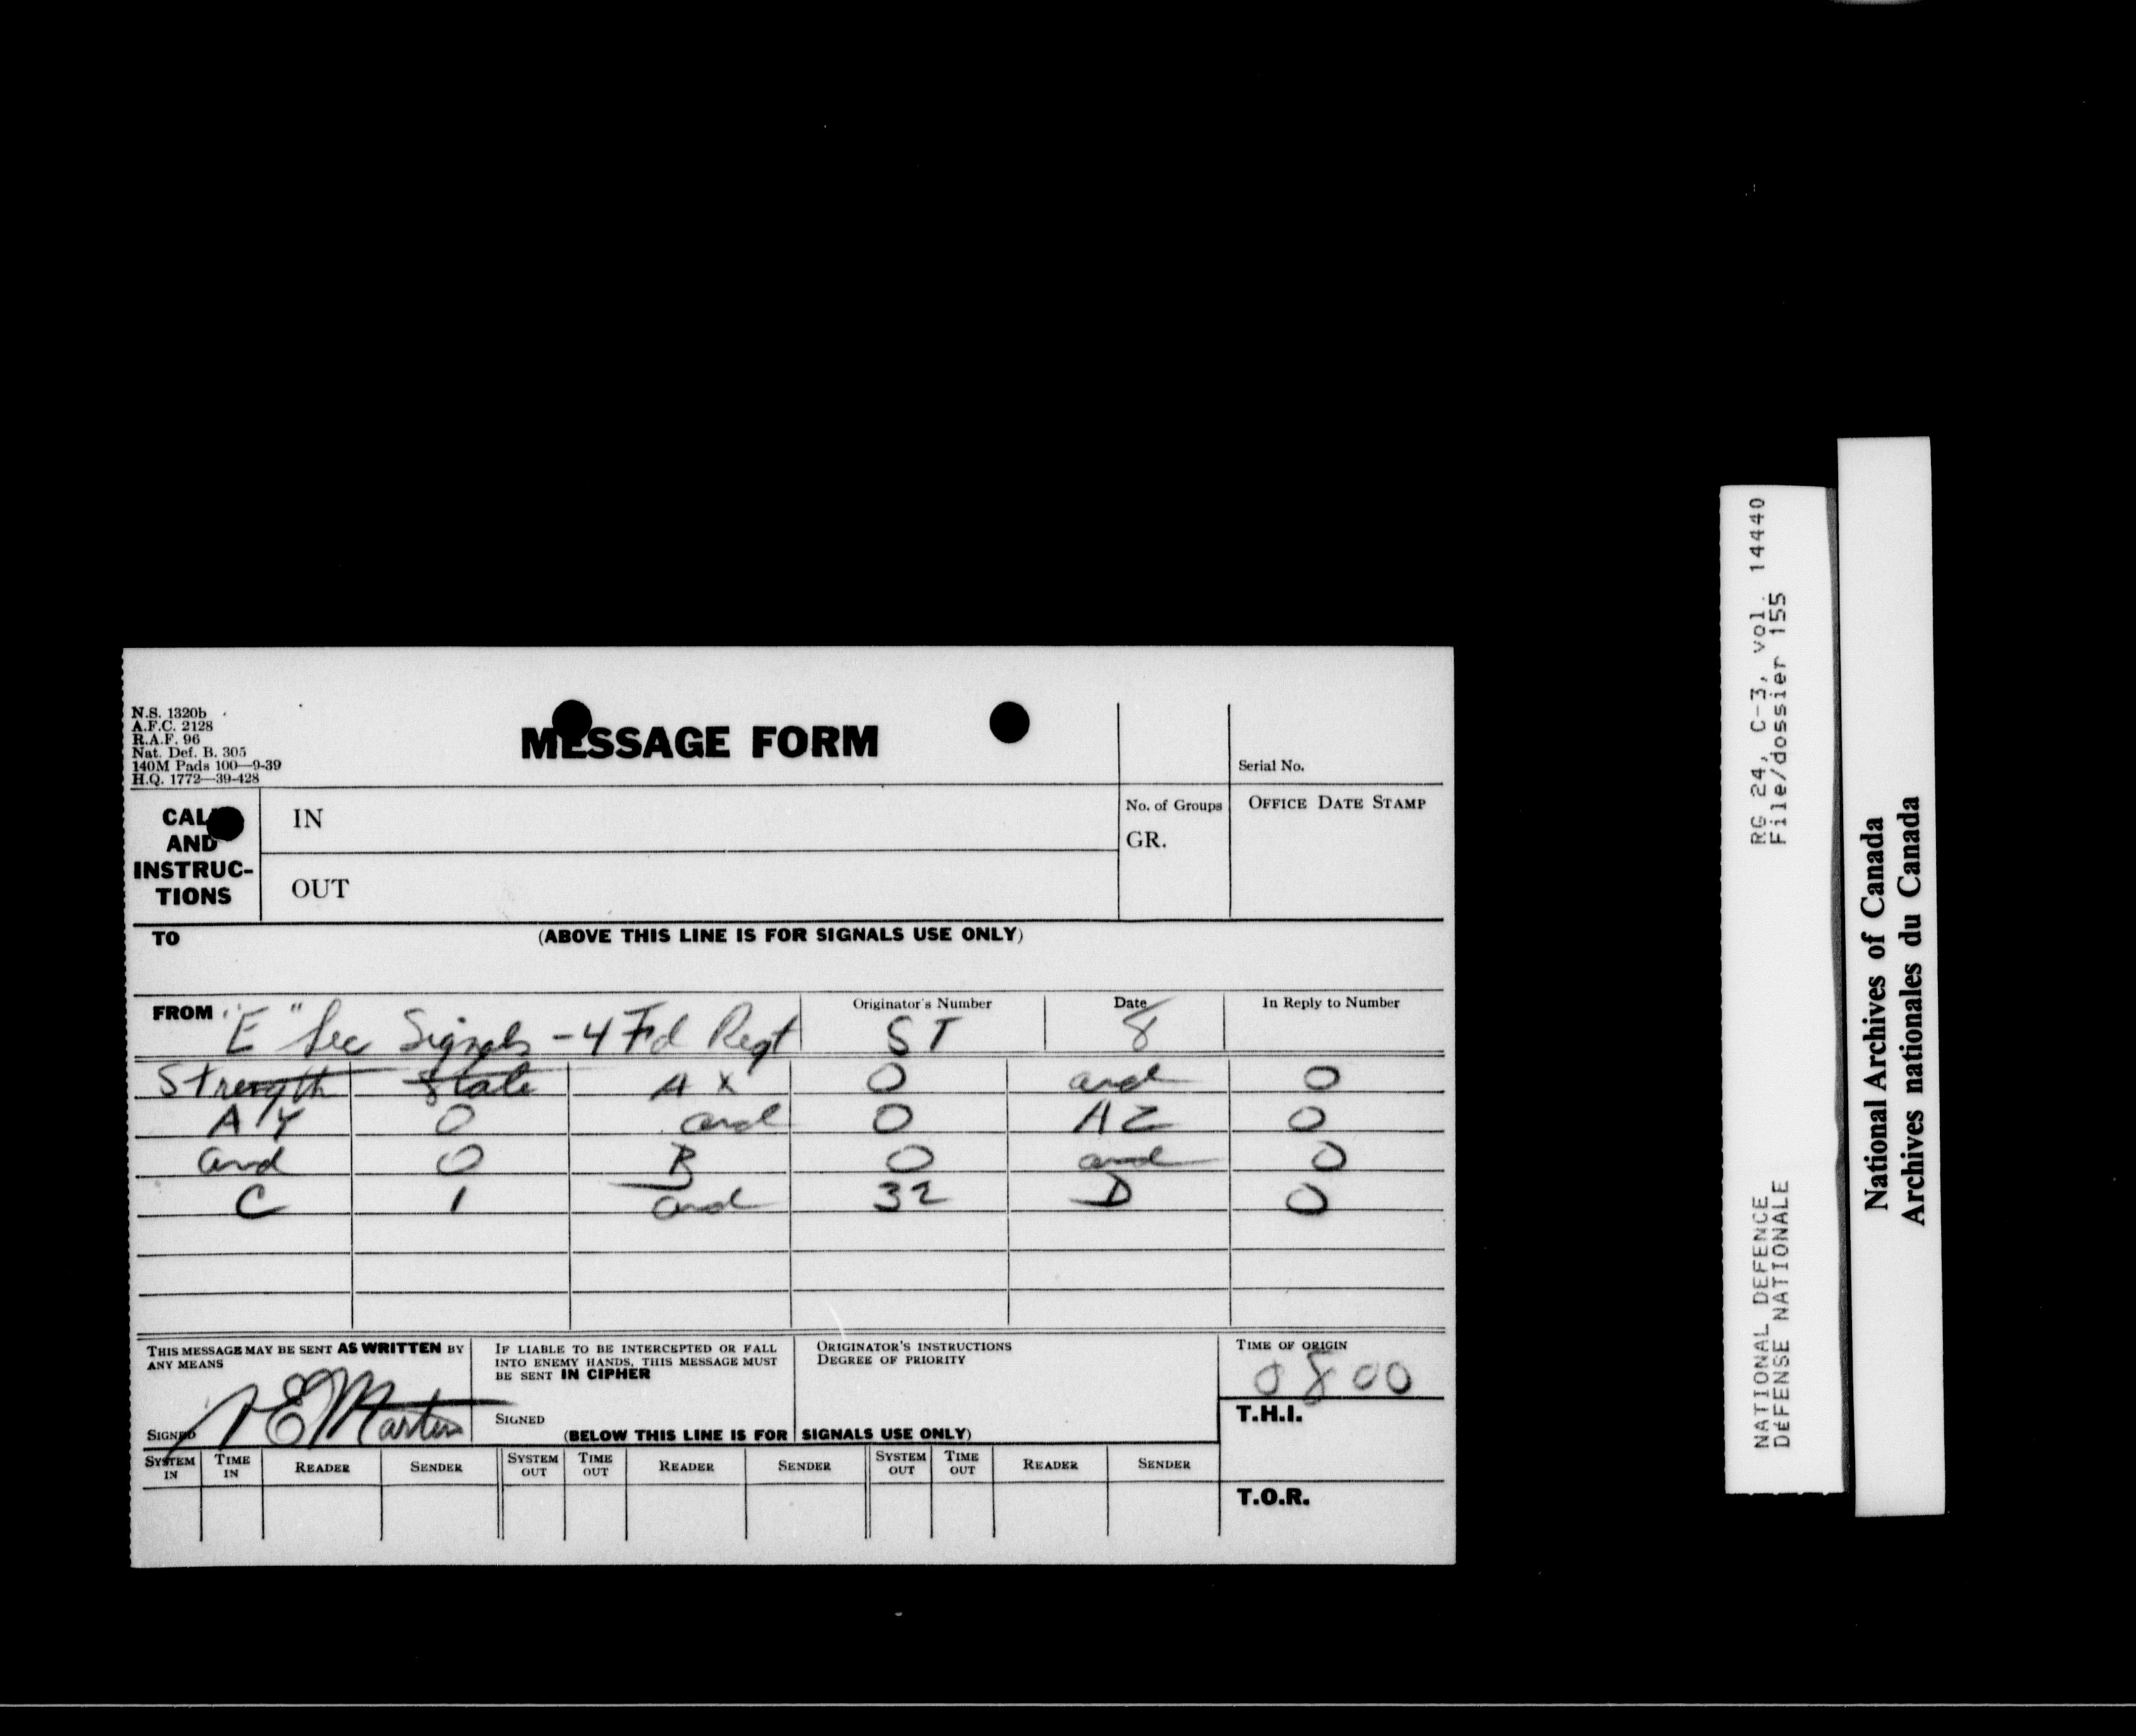 N.S. 1320b
A.F.C. 2128
R.A.F. 96
Nat. Def. B. 305
140M Pads 100—9-39
H.Q. 1772—39-428
MESSAGE FORM
Serial No.
CALL
AND
INSTRUC-
TIONS
IN
OUT
No. of Groups
GR.
OFFICE DATE STAMP
TO
(ABOVE THIS LINE IS FOR SIGNALS USE ONLY)
FROM "E" Sec Signals - 4 Fd Regt
Originator's Number
ST
Date
8
In Reply to Number
Strength State AX 0 and 0
AY 0 and 0 AZ 0
and 0 B 0 and 0
C 1 and 32 D 0
THIS MESSAGE MAY BE SENT AS WRITTEN BY
ANY MEANS
SIGNED Martin
IF LIABLE TO BE INTERCEPTED OR FALL
INTO ENEMY HANDS, THIS MESSAGE MUST
BE SENT IN CIPHER
SIGNED
ORIGINATOR'S INSTRUCTIONS
DEGREE OF PRIORITY
(BELOW THIS LINE IS FOR SIGNALS USE ONLY)
TIME OF ORIGIN
0800
T.H.I.
SYSTEM IN TIME IN READER SENDER SYSTEM OUT TIME OUT READER SENDER SYSTEM OUT TIME OUT READER SENDER
T.O.R.
NATIONAL DEFENCE RG 24, C-3, vol. 14440
DéFENSE NATIONALE File/dossier 155
National Archives of Canada
Archives nationales du Canada